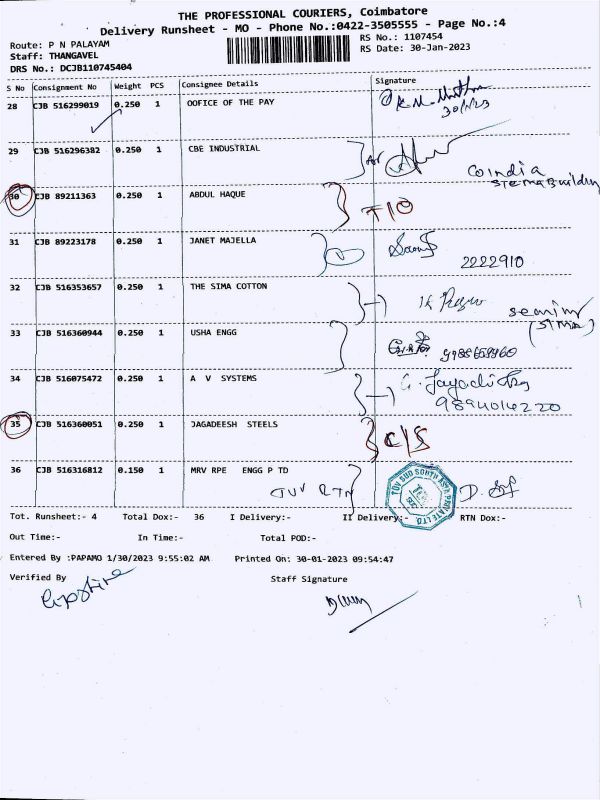 THE PROFESSIONAL COURIERS, Coimbatore
Delivery Runsheet - MO - Phone No.:0422-3505555 - Page No.:4
Route: P N PALAYAM
RS No.: 1107454
Staff: THANGAVEL
RS Date: 30-Jan-2023
DRS No.: DCJB110745404
S No Consignment No Weight PCS Consignee Details Signature
28 CJB 516299019 0.250 1 OOFICE OF THE PAY
30/1/23
29 CJB 516296382 0.250 1 CBE INDUSTRIAL
Coindia
30 CJB 89211363 0.250 1 ABDUL HAQUE
31 CJB 89223178 0.250 1 JANET MAJELLA
2222910
32 CJB 516353657 0.250 1 THE SIMA COTTON
(SIMA)
33 CJB 516360944 0.250 1 USHA ENGG
34 CJB 516075472 0.250 1 A V SYSTEMS
35 CJB 516360051 0.250 1 JAGADEESH STEELS C/S
36 CJB 516316812 0.150 1 MRV RPE ENGG P TD
TUV RTN
TUV SUD SOUTH ASIA PRIVATE LTD.
Tot. Runsheet:- 4 Total Dox:- 36 I Delivery:- II Delivery:- RTN Dox:-
Out Time:- In Time:- Total POD:-
Entered By :PAPAMO 1/30/2023 9:55:02 AM Printed On: 30-01-2023 09:54:47
Verified By Staff Signature